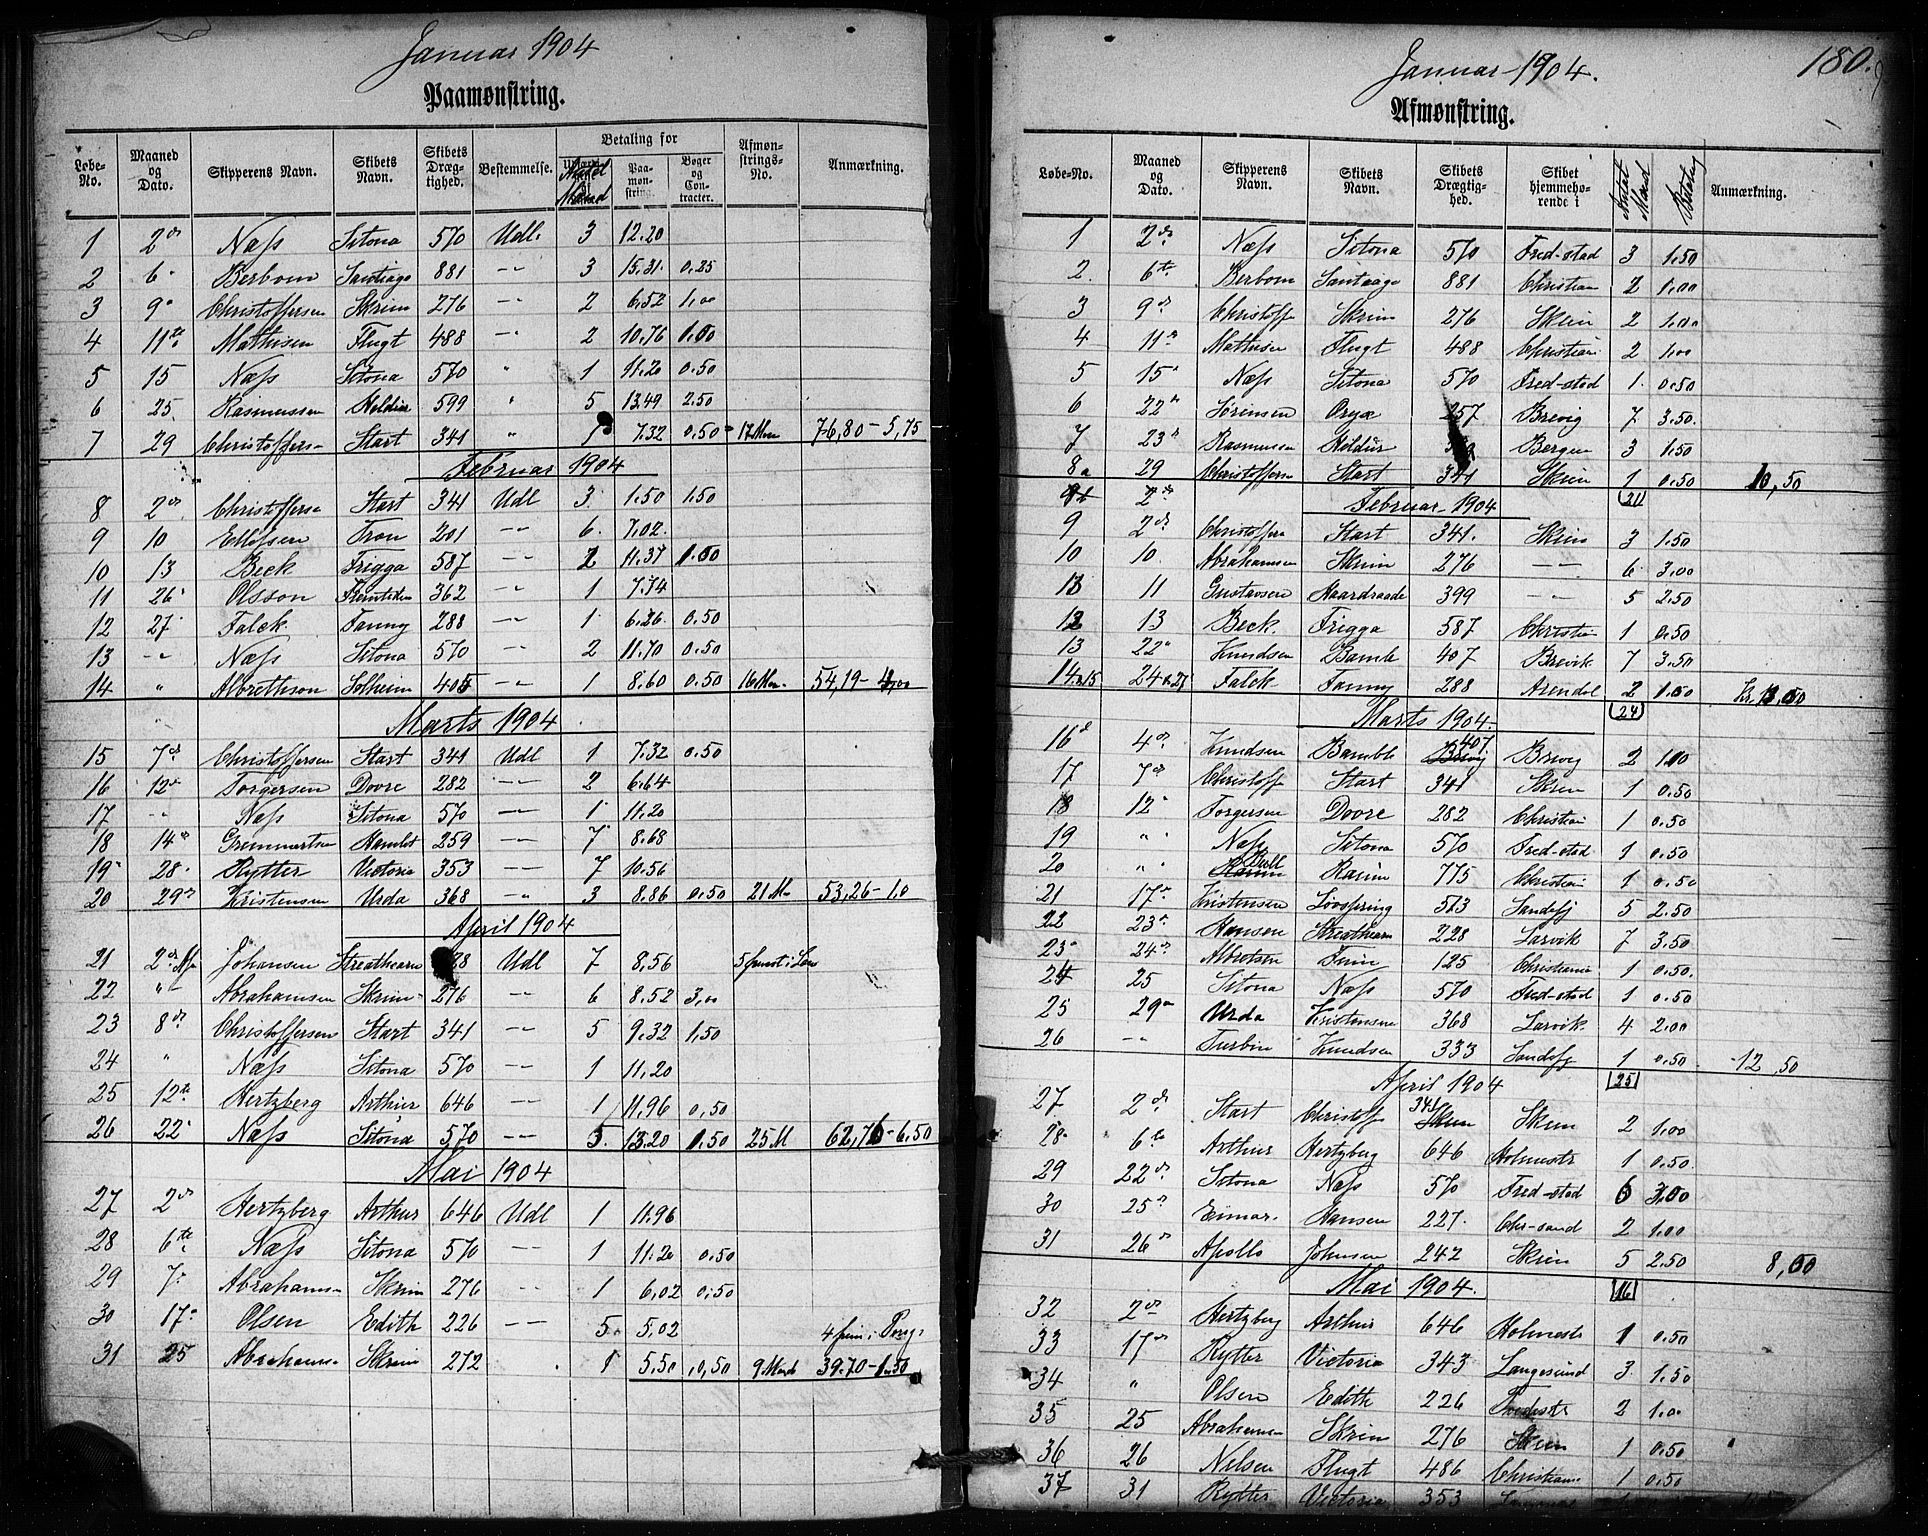 Januar 1904
Paamønstring.
Løbe-No. Maaned og Dato. Skipperens Navn. Skibets Navn. Skibets Dræg-tighed. Bestemmelse. Betaling for Antal Mænd Paa-møn-string. Bøger og Con-tracter. Afmøn-strings-No. Anmærkning.
1 2den Næss Sitona 570 Udl. 3 12.20
2 6 Berbom Santiago 881 -"- 3 15.31 0.25
3 9 Christoffersen Skrim 276 -"- 2 6.52 1.00
4 11te Mathisen Flugt 488 -"- 2 10.76 1.00
5 15 Næss Sitona 570 " 1 11.20 0.50
6 25 Rasmussen Heldur 599 " 5 13.49 2.50
7 29 Christoffers- Start 341 " 1 7.32 0.50 17 Mn 76,80-5,75
Februar 1904
8 2den Christoffers- Start 341 Udl 3 1.50 1.50
9 10 Ellefsen Tron 201 -"- 6 7.02
10 13 Beck Frigga 587 -"- 2 11.37 1.00
11 26 Olsson 362 -"- 1 7.74
12 27 Falck Fanny 288 -"- 1 6.26 0.50
13 -"- Næss Sitona 570 -"- 2 11.70 0.50
14 " Albrethson Solheim 405 -"- 1 8.60 0.50 16 Mn. 54,19-4,00
Marts 1904
15 7de Christoffersen Start 341 Udl 1 7.32 0.50
16 12te Torgersen Dovre 282 -"- 2 6.64
17 -"- Næss Sitona 570 -"- 1 11.20
18 14de Hamlet 259 -"- 7 8.68
19 28 Rytter Victoria 353 -"- 7 10.56
20 29de Kristensen Urda 368 -"- 3 8.86 0.50 21 M 53,26-1.0
April 1904
21 2den Johansen Streathearn 228 Udl 7 8,56
22 " Abrahamsen Skrim 276 -"- 6 8.52 3,00
23 8de Christoffersen Start 341 -"- 5 9.32 1,50
24 " Næss Sitona 570 -"- 1 11,20
25 12te Hertzberg Arthur 646 -"- 1 11,96 0,50
26 22 Næss Sitona 570 -"- 5 13.20 1.50 25 M 62,76-6.50
Mai 1904
27 2den Hertzberg Arthur 646 Udl 1 11.96
28 6te Næss Sitona 570 -"- 1 11.20 0.50
29 7 Abrahams- Skrim 276 -"- 1 6,02 0.50
30 17 Olsen Edith 226 -"- 5 5,02
31 25 Abrahams- Skrim 272 1 5.50 0,50 9 Mand 39.70-1.50
Januar 1904.
180.
Afmønstring.
Løbe-No. Maaned og Dato. Skipperens Navn. Skibets Navn. Skibets Drægtig-hed. Skibet hjemmehø-rende i Antal Mænd Betaling Anmærkning.
1 2den Næss Sitona 570 Fred-stad 3 1.50
2 6te Berbom Santiago 881 Christian 2 1.00
3 9de Christoff Skrim 276 Skien 2 1.00
4 11te Mathisen Flugt 488 Christian 2 1.00
5 15 Næss Sitona 570 Fred-stad 1 0.50
6 22de Sørensen Oryx 257 Brevig 7 3.50
7 23de Rasmussen Heldur Bergen 3 1.50
8 29 Christoffersen Start 341 Skien 1 0.50 10,50
Februar 1904 21
9 2den Christoffers Start 341 Skien 3 1.50
10 10 Abrahamsen Skrim 276 -"- 6 3.00
11 11 Gustavsen Haardraade 399 -"- 5 2.50
12 13 Beck Frigga 587 Christian 1 0.50
13 22 Knudsen Bamb 407 Brevik 7 3.50
14 & 15 24 & 27 Falck Fanny 288 Arendal 2 1.00 Kr. 12,00
Marts 1904. 24
16 4de Knudsen Bamble 407 Brevig 2 1.00
17 7de Christoff Start 341 Skien 1 0.50
18 12 Torgersen Dovre 282 Christian 1 0.50
19 " Næss Sitona 570 Fred-stad 1 0.50
20 " Bull Ranun 775 Christian 1 0.50
21 17de Kristensen Lovspring 513 Sandefj 5 2.50
22 23de Hansen Streathearn 228 Larvik 7 3.50
23 24de Albertsen 125 Christiania 1 0.50
24 25 Sitona Næss 570 Fred-stad 1 0.50
25 29de Urda Kristensen 368 Larvik 4 2.00
26 -"- Turbin Knudsen 333 Sandefj 1 0.50 12,50
April 1904 25
27 2den Start Christoff 341 Skien 2 1.00
28 6te Arthur Hertzberg 646 Holmestr 1 0.50
29 22de Sitona Næss 570 Fred-stad 6 3.00
30 25de Einar Hansen 227 Chr-sand 2 1.00
31 26de Apollo Johnsen 242 Skien 5 2.50 8,00
Mai 1904. 16
32 2den Hertzberg Arthur 646 Holmestr 1 0.50
33 17de Rytter Victoria 343 Langesund 3 1.50
34 " Olsen Edith 226 Tvedestr 2 1.00
35 25 Abrahamsen Skrim 276 Skien 1 0.50
36 26 Nilsen Flugt 486 Christiania 1 0.50
37 31 Rytter Victoria 353